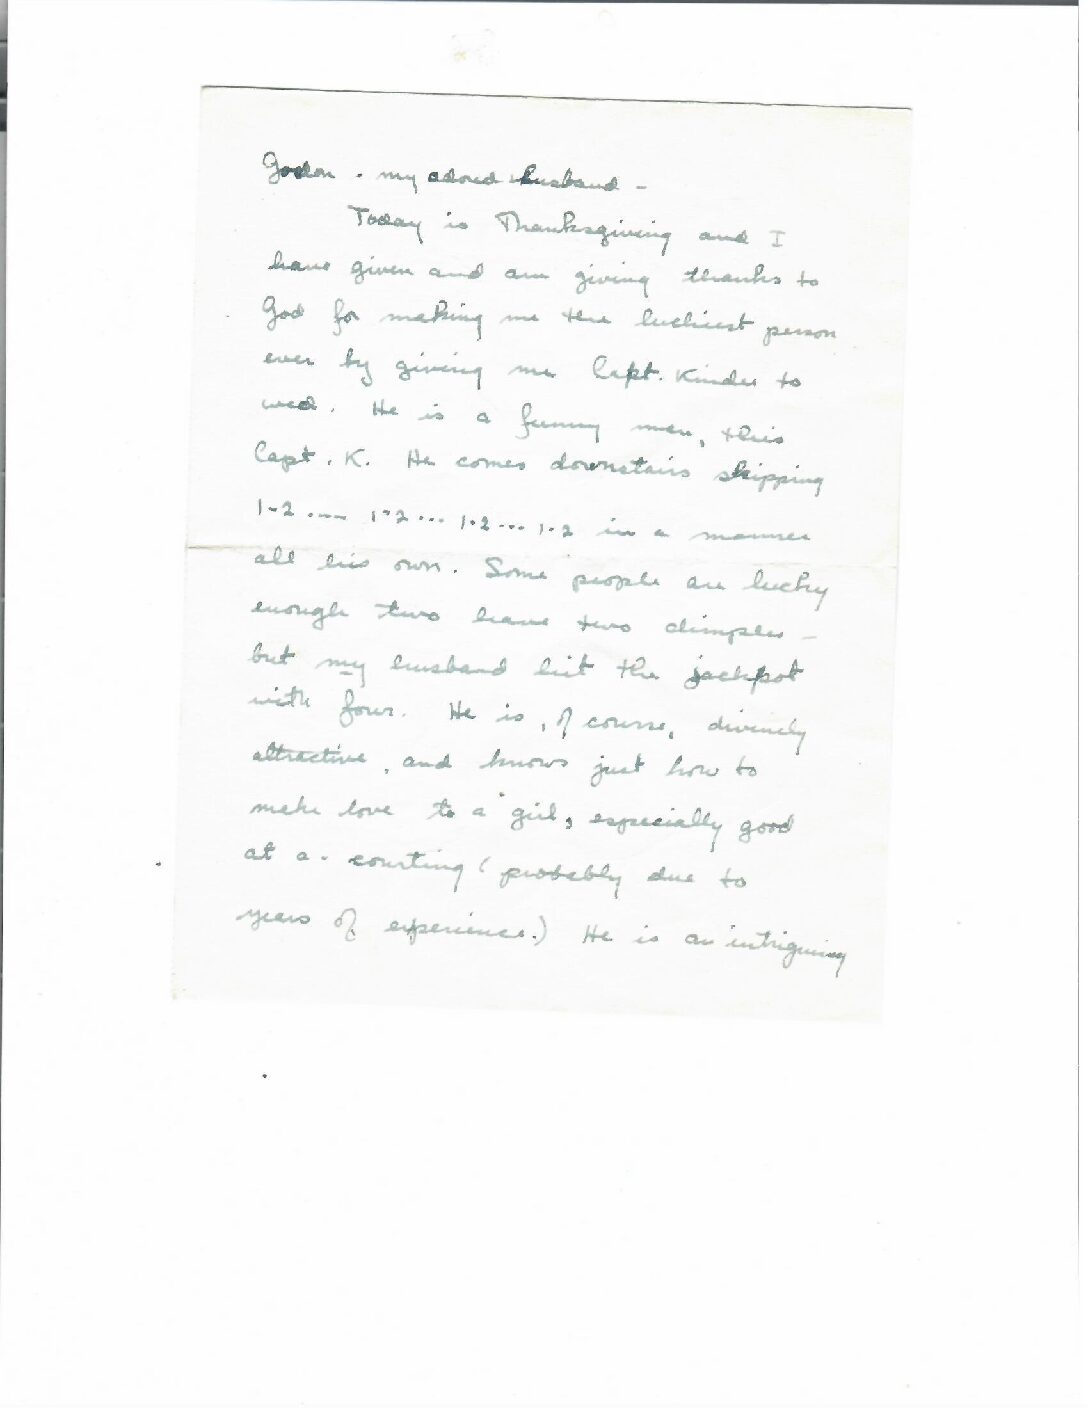 Gordon - my adored husband -
Today is Thanksgiving and I
have given and am giving thanks to
God for making me the luckiest person
ever by giving me Capt. Kinder to
wed. He is a funny man, this
Capt. K. He comes downstairs skipping
1-2 .... 1-2 ... 1-2 ... 1-2 in a manner
all his own. Some people are lucky
enough two have two dimples -
but my husband hit the jackpot
with four. He is, of course, divinely
attractive, and knows just how to
make love to a girl, especially good
at a - courting (probably due to
years of experience.) He is an intriguing